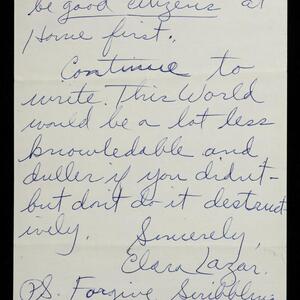 be good citizens at
Home first.
Continue to
write. This World
would be a lot less
knowledable and
duller if you didnt-
but dont do it destruct
ively. Sincerely,
Clara Lazar.
PS. Forgive Scribbling